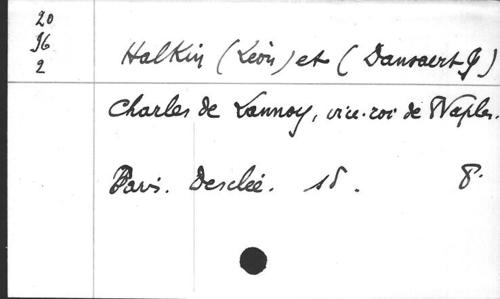 20
96
2
Halkin (Léon) et (Dansaert G)
Charles de Lannoy, vice-roi de Naples.
Paris. Desclée. sd. 8°